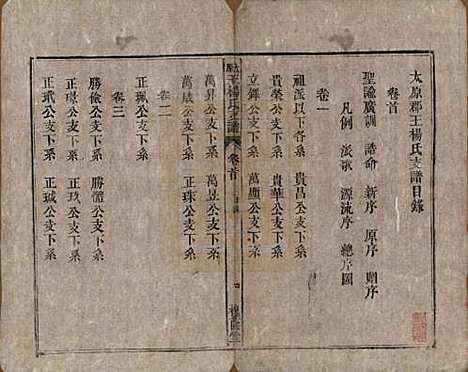 太原郡王楊氏支譜目錄
卷首
聖諭廣訓 誥命 新序 原序 贈序
凡例 派歌 源流序 總序圖
卷一
祖派以下各系 貴昌公支下系
貴榮公支下系 貴華公支下系
立鐸公支下系 萬鍾公支下系
王楊氏支譜 卷首 目錄
萬昇公支下系 萬昱公支下系
萬成公支下系 正珠公支下系
卷二
正珮公支下系
勝儉公支下系 勝體公支下系
正璟公支下系 正玖公支下系
卷三
正玳公支下系 正珹公支下系